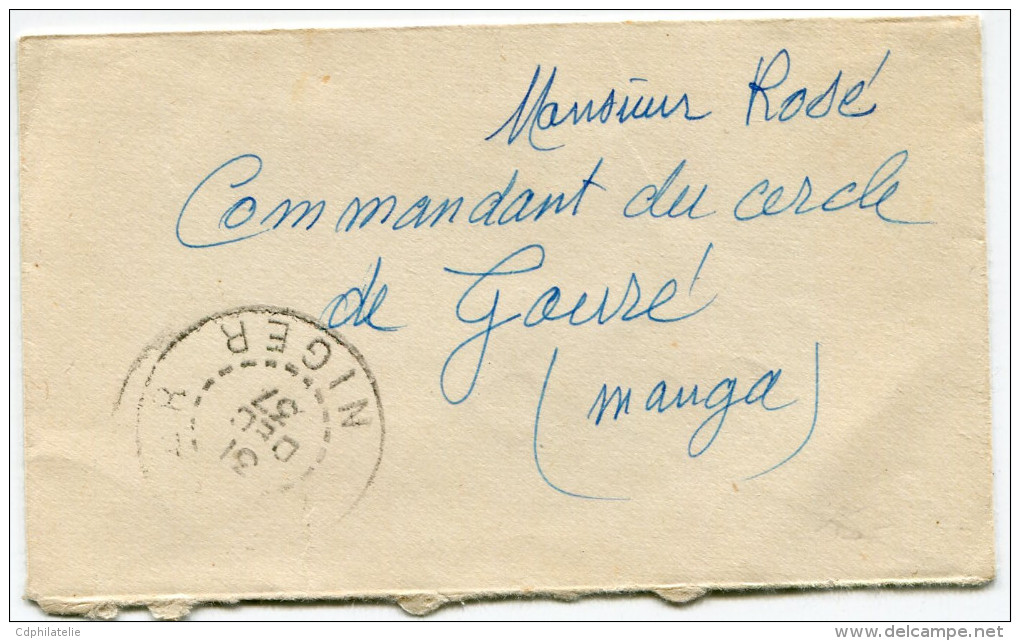 Monsieur Rosé
Commandant du cercle
de Gouré
(manga)
NIGER
31
DEC
57
Cdphilatelie
delcampe.net